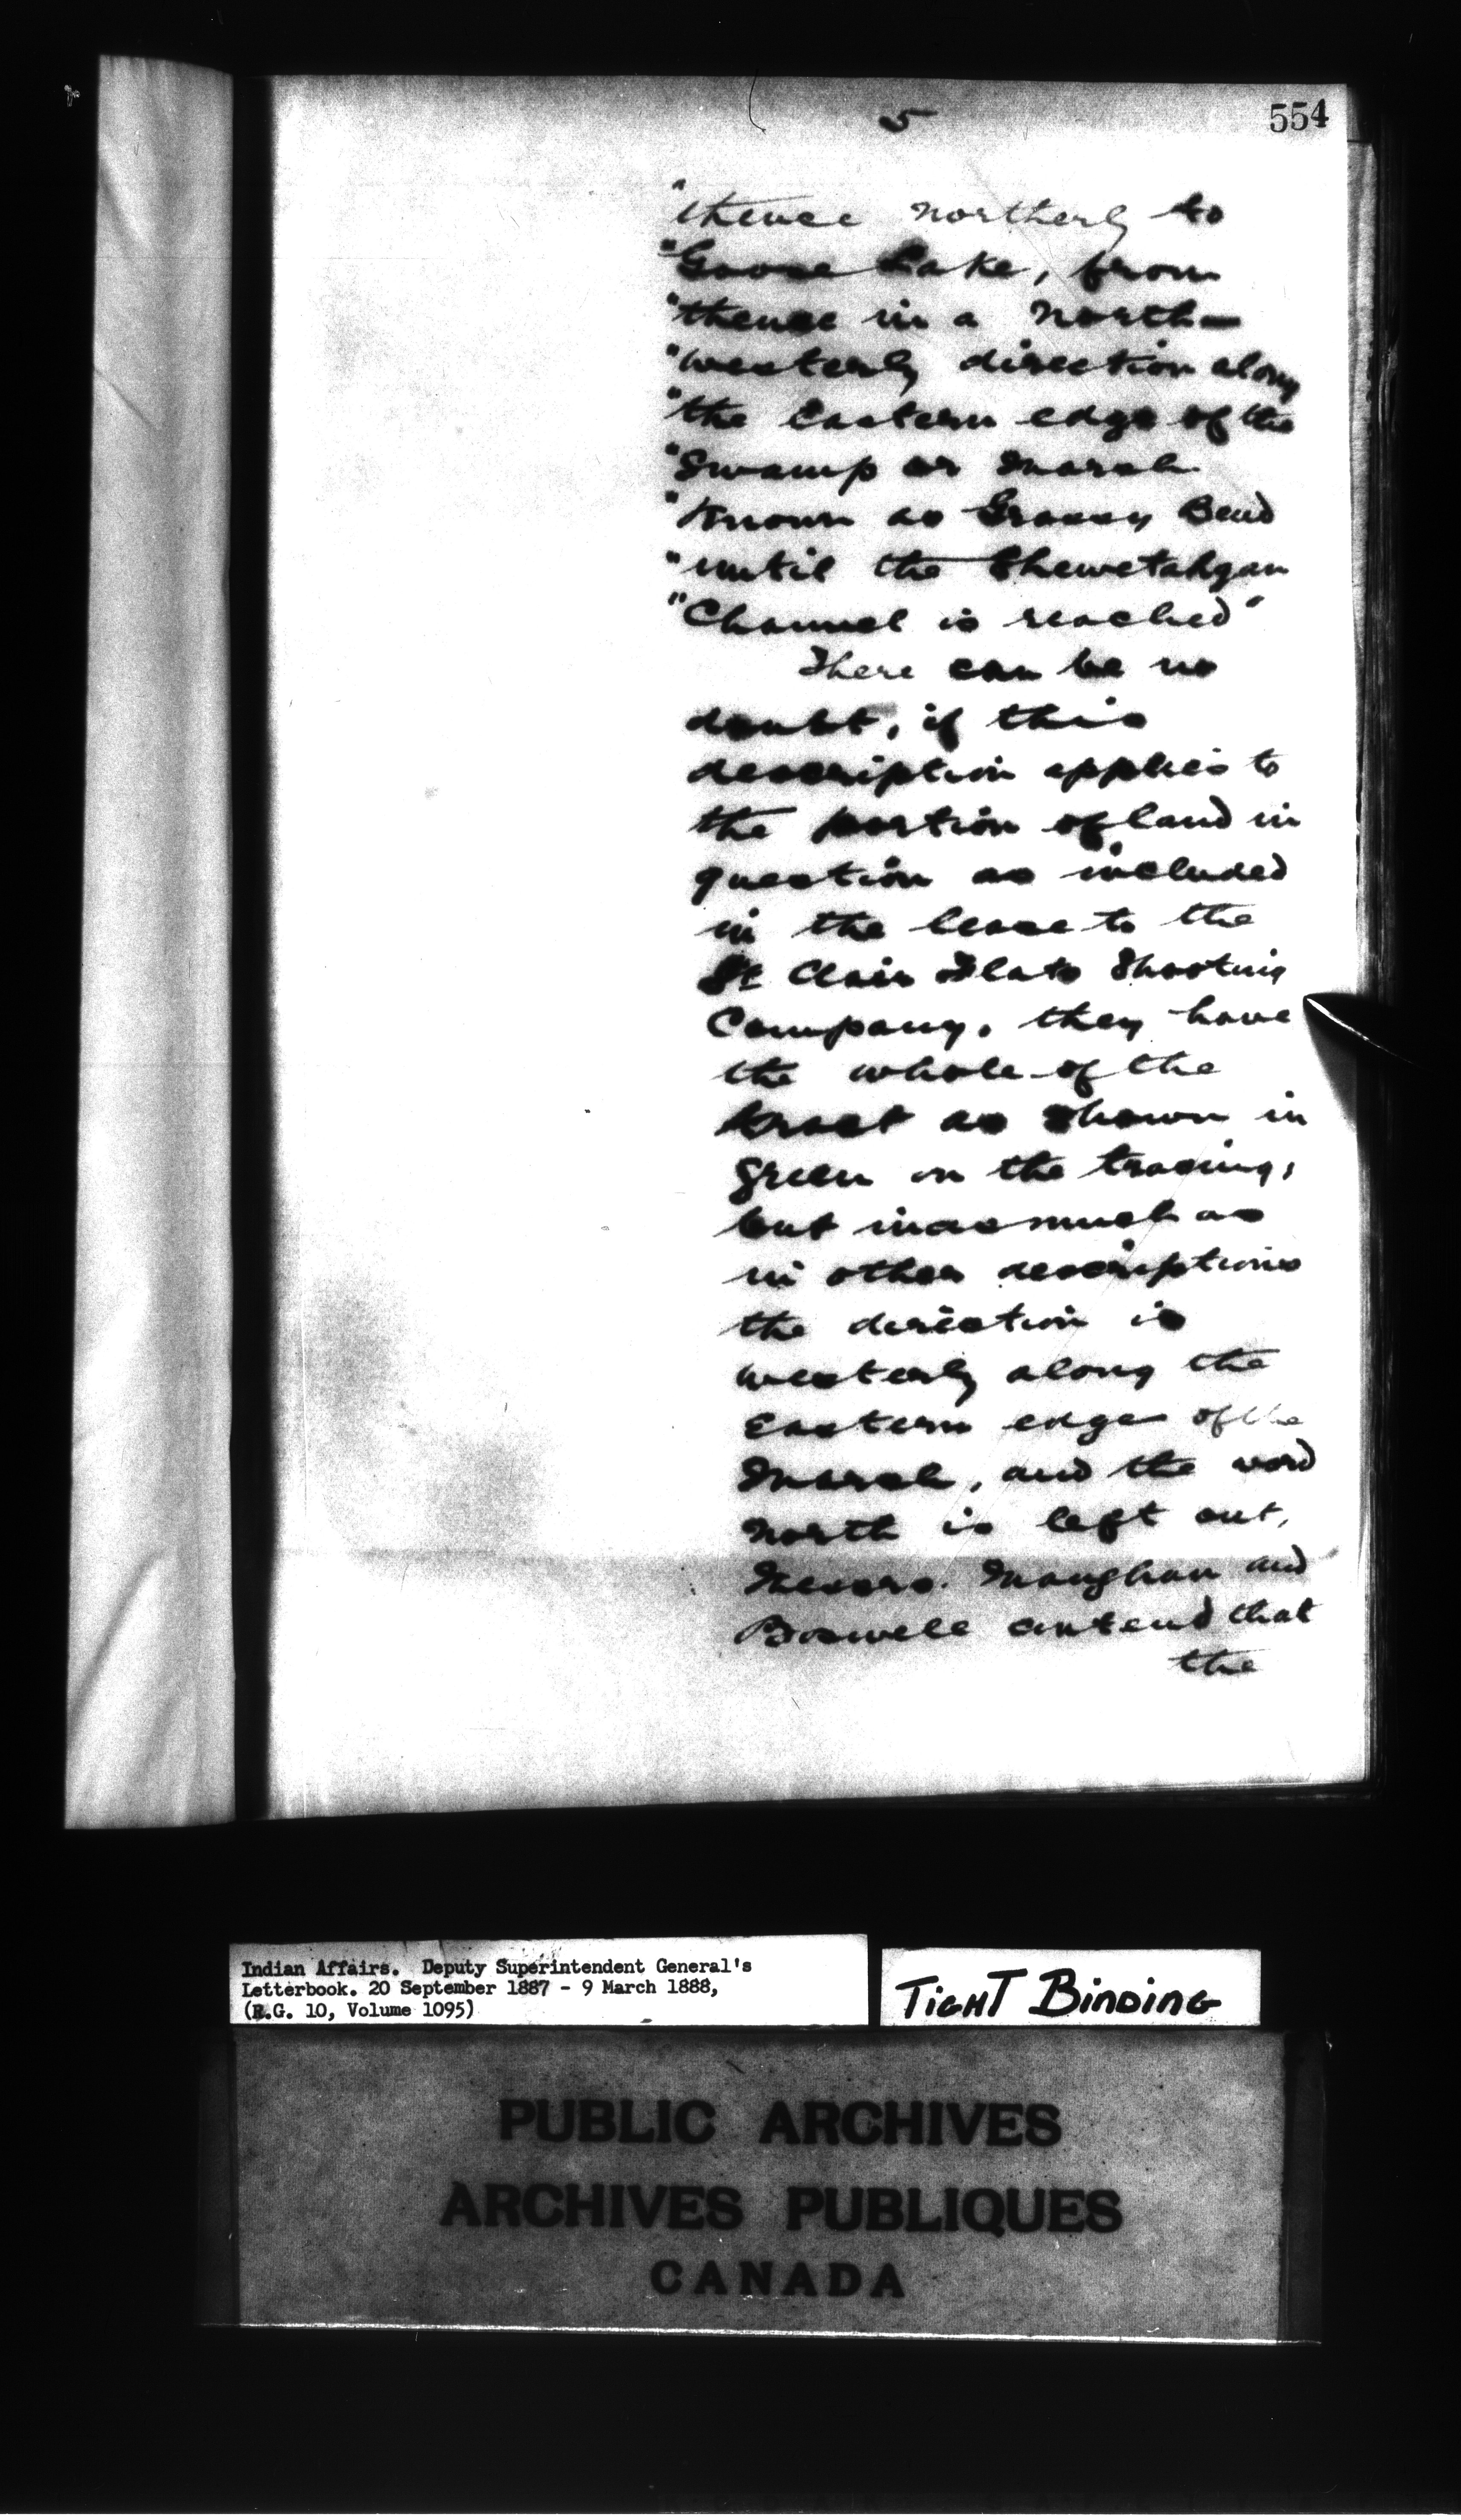 5
554
"thence northerly to
"Goose Lake, from
"thence in a North-
"westerly direction along
"the Eastern edge of the
"Swamp or Marsh
"Known as Grassy Bend
"until the Chewetahgan
"Channel is reached"
There can be no
doubt, if this
description applies to
the portion of land in
question as included
in the lease to the
St Clair Flats Shooting
Company, they have
the whole of the
tract as shown in
green on the tracing,
but inasmuch as
in other descriptions
the direction is
westerly along the
Eastern edge of the
Marsh, and the word
North is left out,
Messrs. Maughan and
Boswell contend that
the
Indian Affairs. Deputy Superintendent General's
Letterbook. 20 September 1887 - 9 March 1888,
(R.G. 10, Volume 1095)
TIGHT BINDING
PUBLIC ARCHIVES
ARCHIVES PUBLIQUES
CANADA